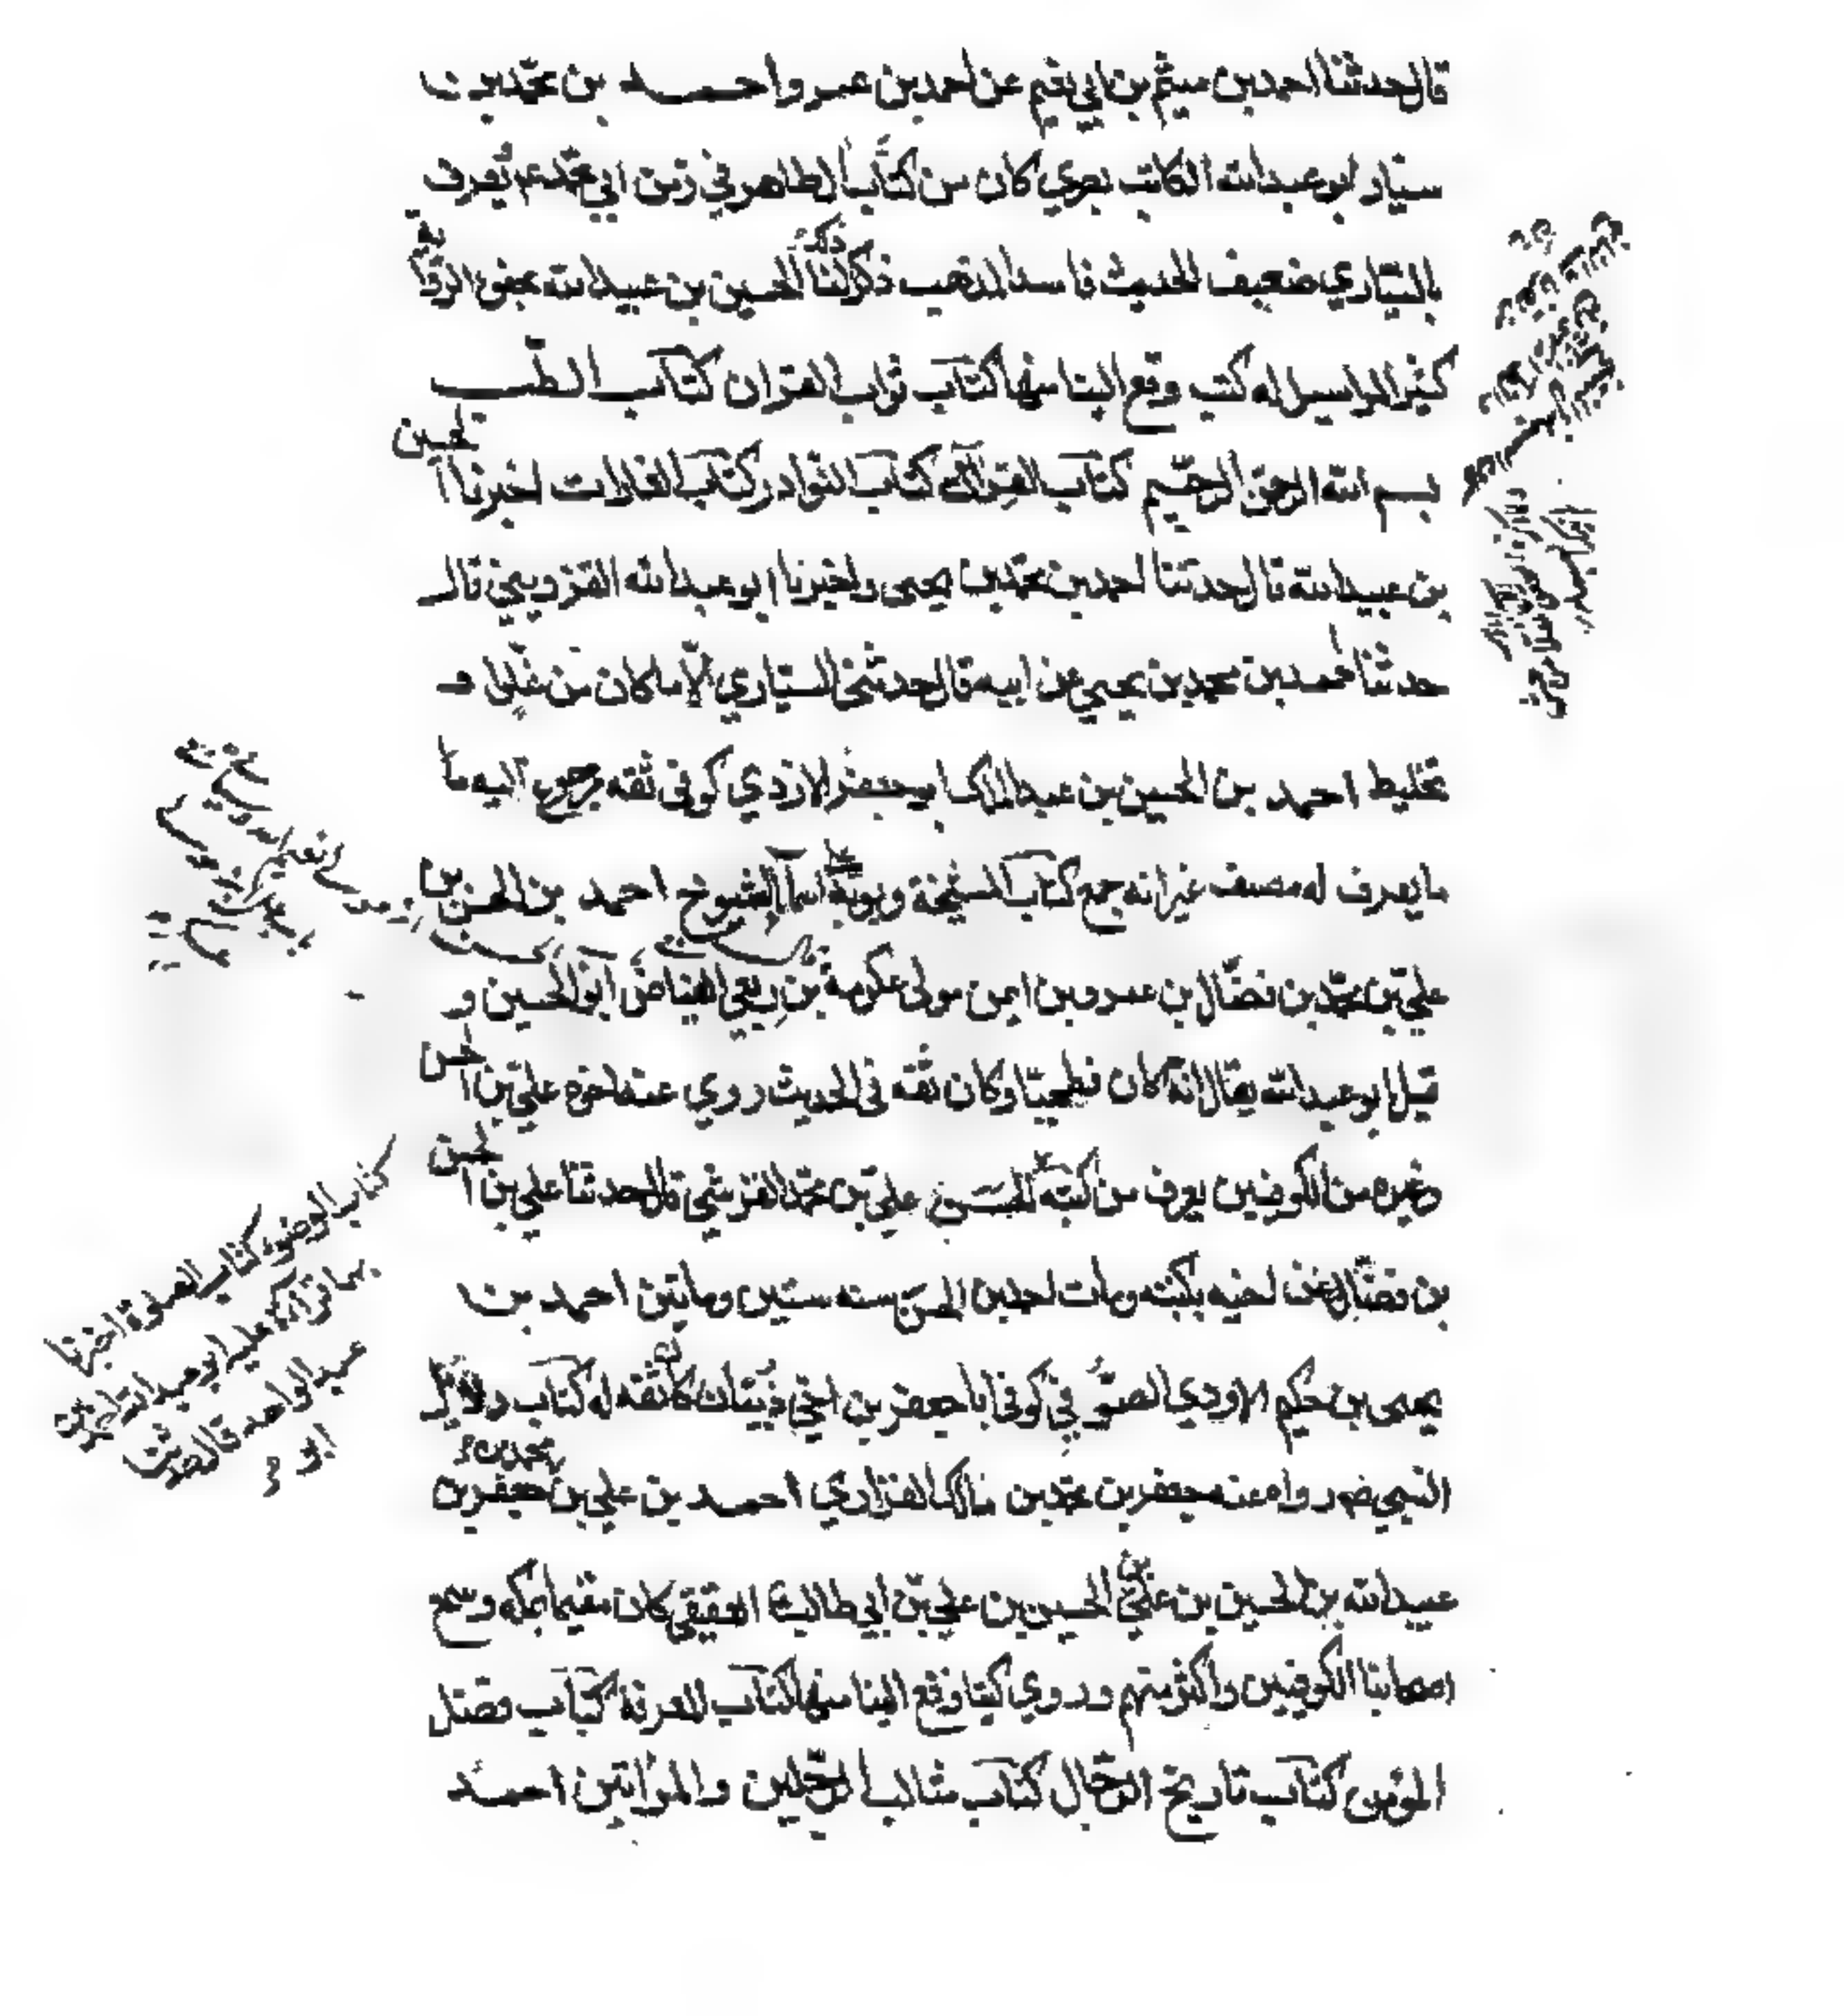 قال حدثنا احمد بن ميثم بن ابي نعيم عن احمد بن عمرو احمد بن محمد بن
سيار ابو عبدالله الكاتب بصري كان من كتاب الطاهر في زمن ابي محمدعم يعرف
بالسياري ضعيف الحديث فاسد المذهب ذكر ذلك لنا الحسين بن عبيدالله مجفو الرواية
كثير المراسيل له كتب وقع الينا منها كتاب ثواب القران كتاب الطب
بسم الله الرحمن الرحيم كتاب القراآت كتاب النوادر كتاب الغارات اخبرنا الحسين
بن عبيدالله قال حدثنا احمد بن محمد بن يحيى واخبرنا ابو عبدالله القزويني قال
حدثنا احمد بن محمد بن يحيى عن ابيه قال حدثني السياري الا ما كان من غلو و
تخليط احمد بن الحسين بن عبدالملك ابو جعفر الازدي كوفي ثقه مرجوع اليه ما
ما يعرف له مصنف غير انه جمع كتاب المشيخة وبوبه اسماء الشيوخ احمد بن الحسن بن
علي بن محمد بن فضال بن عمر وبن ايمن مولى عكرمة بن ربعي الفياض ابو الحسين و
قيل ابو عبدالله يقال انه كان فطحيا وكان ثقه في الحديث روي عنه اخوه علي بن الحسن
وغيره من الكوفيين يعرف من كتبه علي بن محمد القرشي قال حدثنا علي بن الحسن
بن فضال عن اخيه بكتبه ومات احمد بن الحسن سنه ستين ومايتين احمد بن
يحيى بن حكيم الاودي الصوفي كوفي ابا جعفر بن اخي ذبيان كان ثقه له كتاب دلائل
النبي ص رواه عنه جعفر بن محمد بن مالك الفزاري احمد بن علي بن محمد بن جعفر بن
عبيدالله بن الحسين بن علي بن الحسين بن علي بن ابي طالب العقيقي كان مقيما بمكه وسمع
اصحابنا الكوفيين واكثر منهم وروي كتبا وقع الينا منها كتاب المعرفة كتاب فضل
المؤمن كتاب تاريخ الرجال كتاب مثالب الرجلين والمراتين احمد
كتاب الوضوء كتاب الصلوة اخبرنا
بها قراءة عليه ابو عبدالله احمد بن
عبد الواحد قال حدثنا
ابو